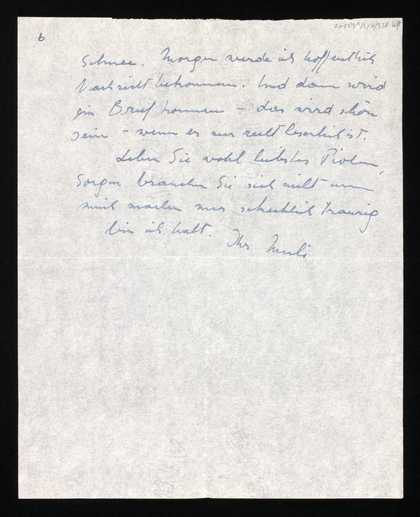 6
Schnee. Morgen werde ich hoffentlich
Nachricht bekommen. Und dann wird
ein Brief kommen – das wird schön
sein – wenn es nur recht leserlich ist.
Leben Sie wohl liebstes
Sorgen brauchen Sie sich nicht um
mich machen nur schecklich traurig
bin ich halt. Ihr